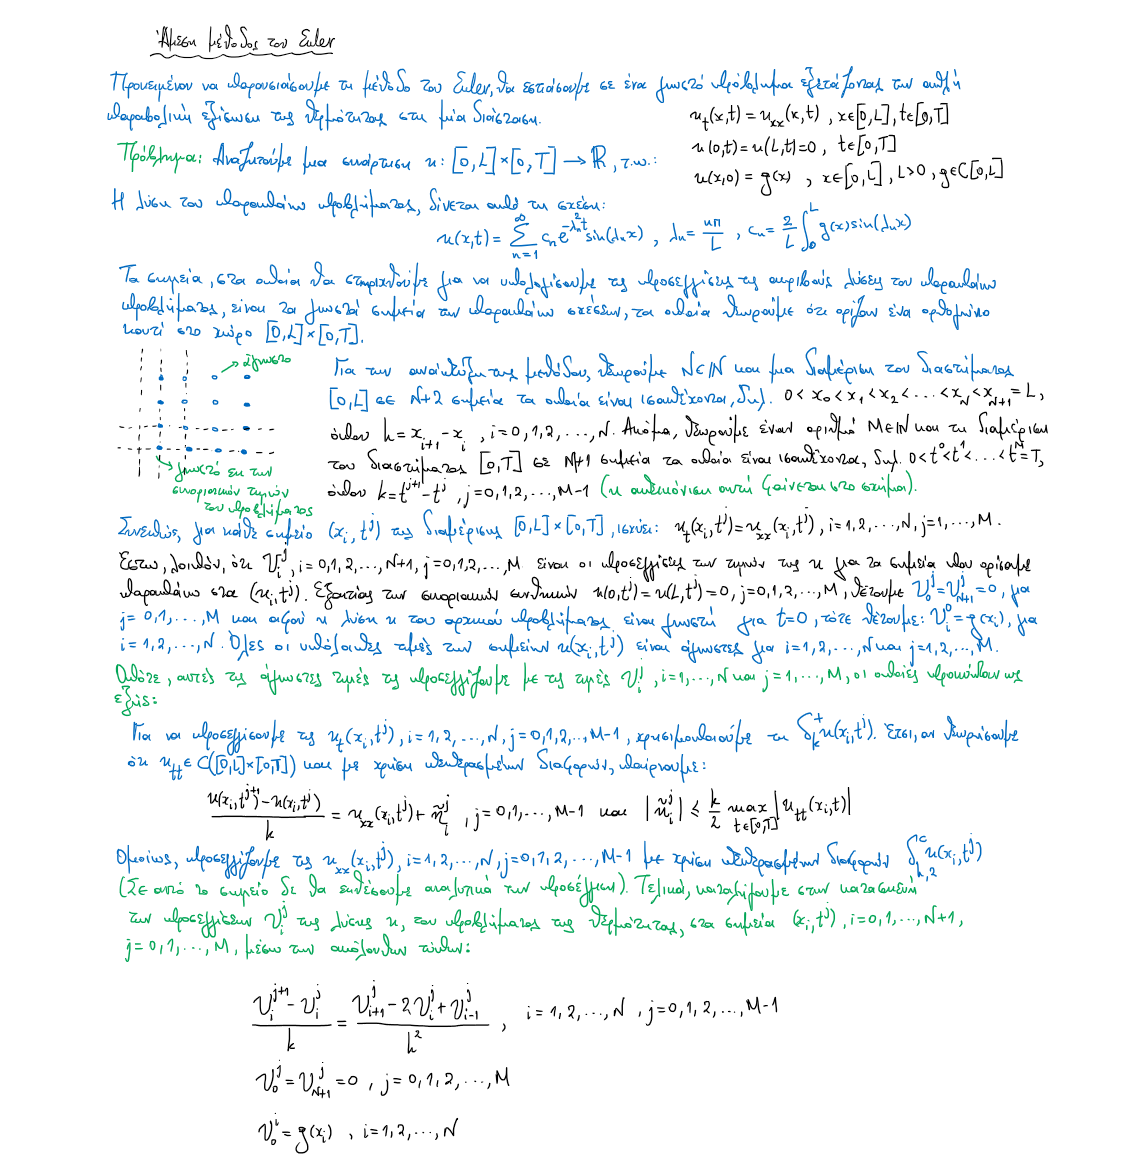 Άμεση μέθοδος του Euler
Προκειμένου να παρουσιάσουμε τη μέθοδο του Euler, θα εστιάσουμε σε ένα γνωστό πρόβλημα εξετάζοντας την απλή
παραβολική εξίσωση της θερμότητας στη μία διάσταση.
u_t(x,t) = u_xx(x,t) , x∈[0,L], t∈[0,T]
Πρόβλημα: Αναζητούμε μια συνάρτηση u: [0,L]×[0,T] → ℝ, τ.ω.:
u(0,t) = u(L,t) = 0 , t∈[0,T]
u(x,0) = g(x) , x∈[0,L], L>0, g∈C[0,L]
Η λύση του παραπάνω προβλήματος, δίνεται από τη σχέση:
u(x,t) = ∑_{n=1}^{∞} c_n e^{-λ_n^2 t} sin(λ_n x) , λ_n = nπ/L , c_n = 2/L ∫_0^L g(x) sin(λ_n x)
Τα σημεία, στα οποία θα στηριχθούμε για να υπολογίσουμε τις προσεγγίσεις της ακριβούς λύσης του παραπάνω
προβλήματος, είναι τα γνωστά σημεία των παραπάνω σχέσεων, τα οποία θεωρούμε ότι ορίζουν ένα ορθογώνιο
κουτί στο χώρο [0,L]×[0,T].
άγνωστο
γνωστό εκ των
συνοριακών τιμών
του προβλήματος
Για την ανάπτυξη της μεθόδου, θεωρούμε N∈ℕ και μια διαμέριση του διαστήματος
[0,L] σε N+2 σημεία τα οποία είναι ισαπέχοντα, δηλ. 0 < x_0 < x_1 < x_2 < ... < x_N < x_{N+1} = L,
όπου h = x_{i+1} - x_i , i=0,1,2,...,N. Ακόμα, θεωρούμε έναν αριθμό M∈ℕ και τη διαμέριση
του διαστήματος [0,T] σε M+1 σημεία τα οποία είναι ισαπέχοντα, δηλ. 0<t^0<t^1<...<t^M=T,
όπου k = t^{j+1} - t^j , j=0,1,2,...,M-1 (η απεικόνιση αυτή φαίνεται στο σχήμα).
Συνεπώς, για κάθε σημείο (x_i, t^j) της διαμέρισης [0,L]×[0,T], ισχύει: u_t(x_i,t^j) = u_xx(x_i,t^j), i=1,2,...,N, j=1,...,M.
Έστω, λοιπόν, ότι U_i^j, i=0,1,2,...,N+1, j=0,1,2,...,M είναι οι προσεγγίσεις των τιμών της u για τα σημεία που ορίσαμε
παραπάνω στα (x_i,t^j). Εξαιτίας των συνοριακών συνθηκών u(0,t^j) = u(L,t^j) = 0, j=0,1,2,...,M, θέτουμε U_0^j = U_{N+1}^j = 0, για
j=0,1,...,M και αφού η λύση u του αρχικού προβλήματος είναι γνωστή για t=0, τότε θέτουμε: U_i^0 = g(x_i), για
i=1,2,...,N. Όλες οι υπόλοιπες τιμές των σημείων u(x_i,t^j) είναι άγνωστες για i=1,2,...,N και j=1,2,...,M.
Οπότε, αυτές τις άγνωστες τιμές τις προσεγγίζουμε με τις τιμές U_i^j, i=1,...,N και j=1,...,M, οι οποίες προκύπτουν ως
εξής:
Για να προσεγγίσουμε τις u_t(x_i,t^j), i=1,2,...,N, j=0,1,2,...,M-1, χρησιμοποιούμε τη δ_k^+ u(x_i,t^j). Έτσι, αν θεωρήσουμε
ότι u_tt ∈ C([0,L]×[0,T]) και με χρήση πεπερασμένων διαφορών, παίρνουμε:
(u(x_i,t^{j+1}) - u(x_i,t^j))/k = u_xx(x_i,t^j) + ñ_i^j , j=0,1,...,M-1 και |ñ_i^j| ≤ k/2 max_{t∈[0,T]} |u_tt(x_i,t)|
Ομοίως, προσεγγίζουμε τις u_xx(x_i,t^j), i=1,2,...,N, j=0,1,2,...,M-1 με χρήση πεπερασμένων διαφορών δ_{h,2}^c u(x_i,t^j)
(Σε αυτό το σημείο δε θα εκθέσουμε αναλυτικά την προσέγγιση). Τελικά, καταλήγουμε στην κατασκευή
των προσεγγίσεων U_i^j της λύσης u, του προβλήματος της θερμότητας, στα σημεία (x_i,t^j), i=0,1,...,N+1,
j=0,1,...,M, μέσω των ακόλουθων τύπων:
(U_i^{j+1} - U_i^j)/k = (U_{i+1}^j - 2U_i^j + U_{i-1}^j)/h^2 , i=1,2,...,N , j=0,1,2,...,M-1
U_0^j = U_{N+1}^j = 0 , j=0,1,2,...,M
U_0^i = g(x_i) , i=1,2,...,N